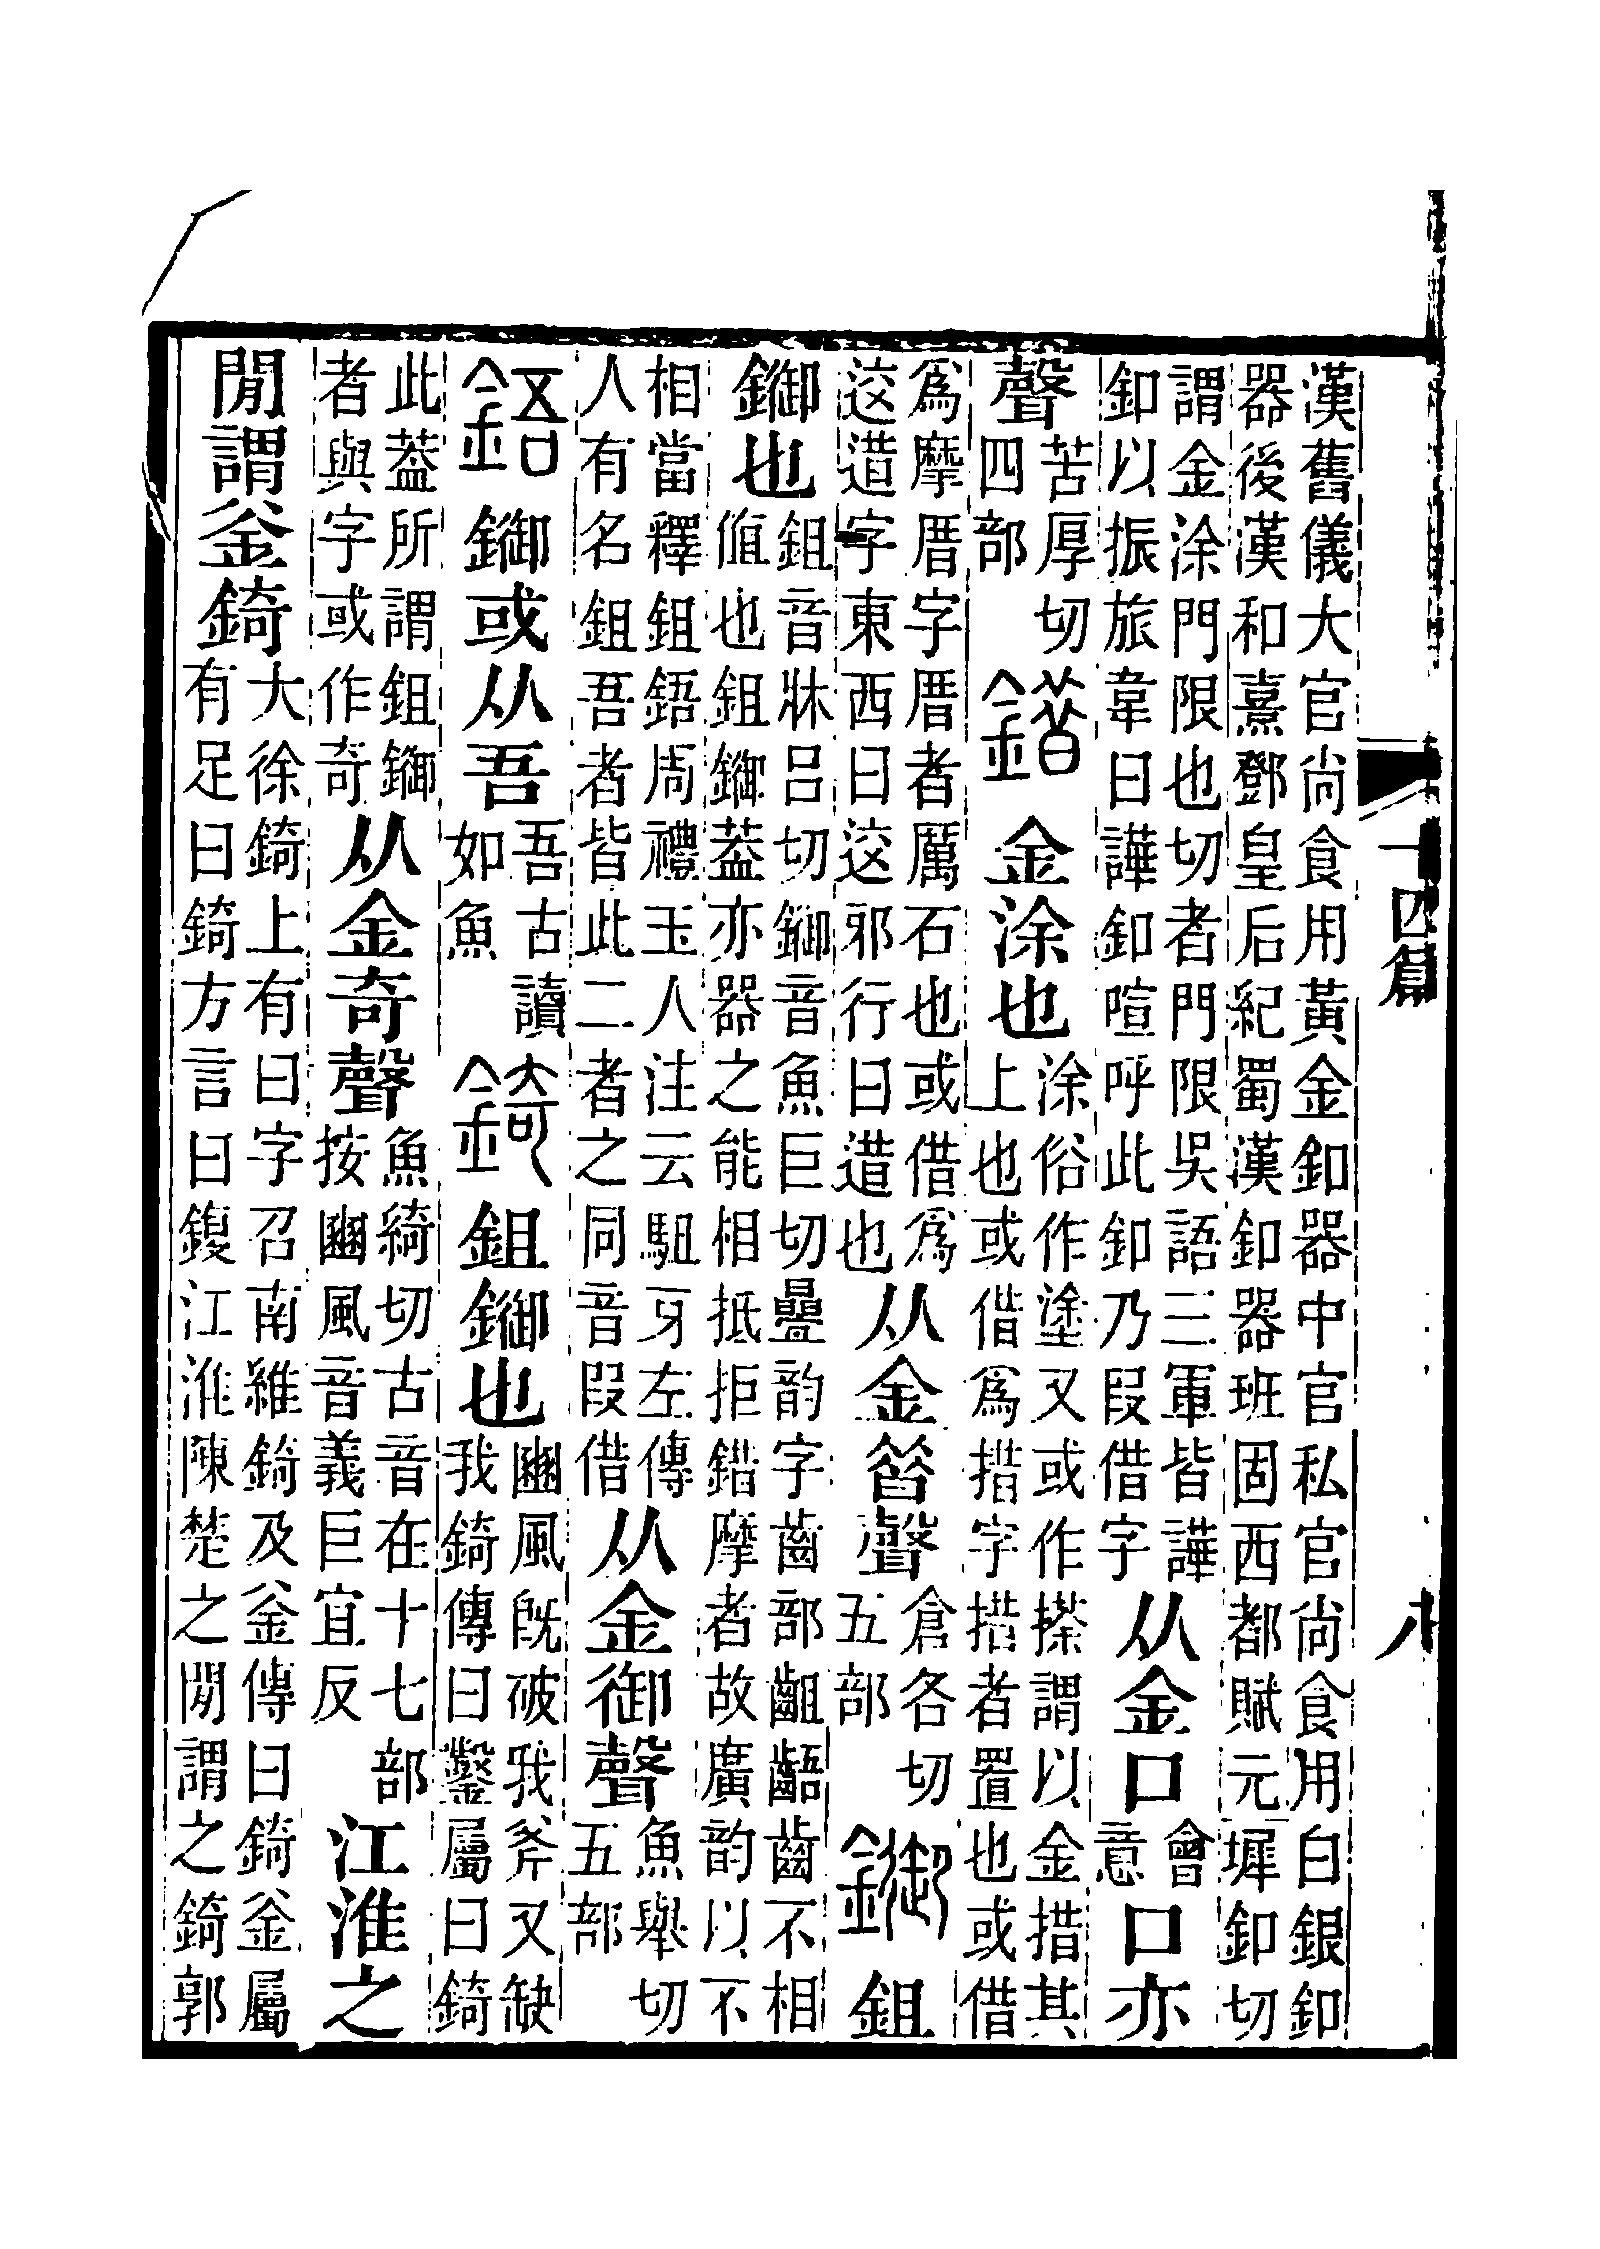 十四篇　八
漢舊儀大官尙食用黃金釦器中官私官尙食用白銀釦
器後漢和熹鄧皇后紀蜀漢釦器班固西都賦元墀釦切
謂金涂門限也切者門限吳語三軍皆譁
釦以振旅韋曰譁釦喧呼此釦乃叚借字
从金口會意口亦
聲苦厚切四部
錯　金涂也
涂俗作塗又或作搽謂以金措其
上也或借爲措字措者置也或借
爲摩厝字厝者厲石也或借爲
䢒逪字東西曰䢒邪行曰逪也
从金㫺聲倉各切五部
䥏　鉏
䥏也
鉏音牀呂切䥏音魚巨切疊韵字齒部齟齬齒不相
値也鉏䥏葢亦器之能相抵拒錯摩者故廣韵以不
相當釋鉏鋙周禮玉人注云駔牙左傳
人有名鉏吾者皆此二者之同音叚借
从金御聲魚舉切五部
鋙　䥏或从吾吾古讀如魚
錡　鉏䥏也
豳風旣破我斧又缺
我錡傳曰鑿屬曰錡
此葢所謂鉏䥏
者與字或作奇
从金奇聲
魚綺切古音在十七部
按豳風音義巨宜反
江淮之
閒謂釜錡
大徐錡上有曰字召南維錡及釜傳曰錡釜屬
有足曰錡方言曰鍑江淮陳楚之閒謂之錡郭